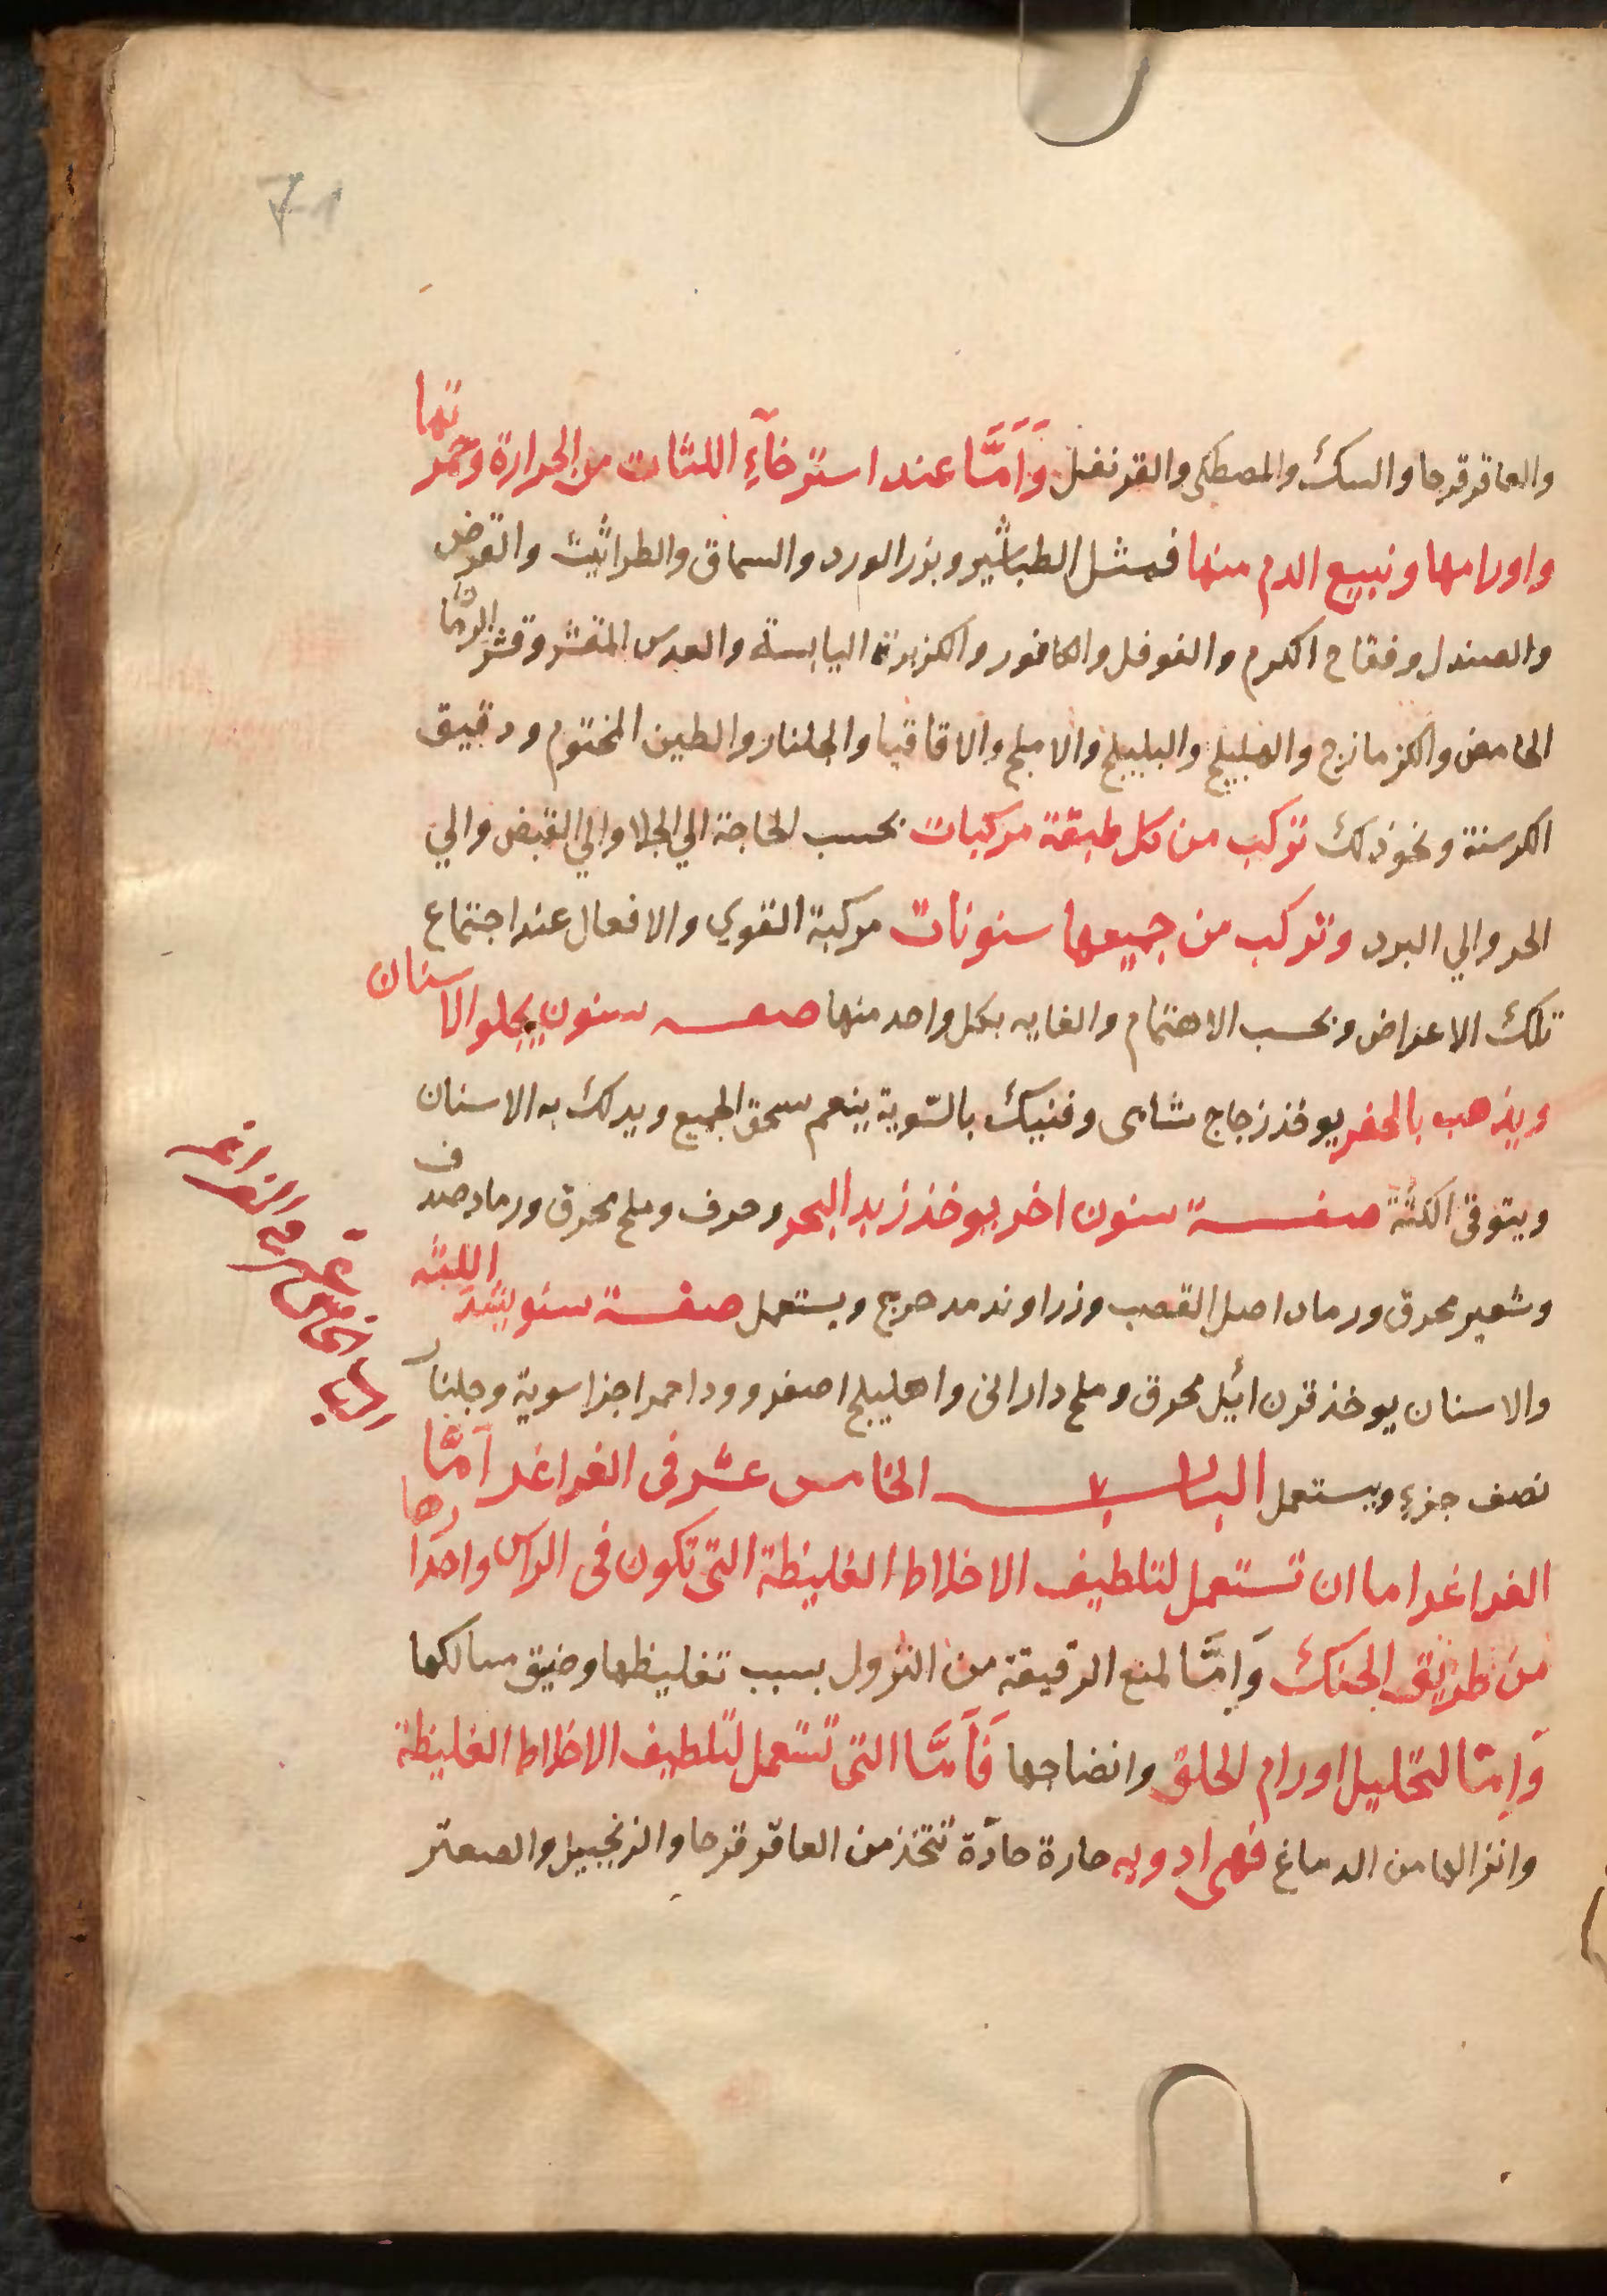 71
والعاقرقرحا والسك والمصطكى والقرنفل وَاَمَّا عند استرخآءِ اللثات من الحرارة وحمرتها
واورامها ونبيع الدم منها فمثل الطباشير وبزر الورد والسماق والطراثيث والقرض
والصندل وفقاح الكرم والفوفل والكافور والكزبرة اليابسة والعدس المقشر وقشر الرمان
الحامض والكزمازج والهليلج والبليلج والاملج والاقاقيا والجلنار والطين المختوم ودقيق
الكرسنة ونحو ذلك تركب من كل طبقة مركبات بحسب الحاجة الي الجلا والي القبض والي
الحر والي البرد وتركب من جميعها سنونات مركبة القوي والافعال عند اجتماع
تلك الاعراض وبحسب الاهتمام والغايه بكل واحد منها صفه سنون يجلو الاسنان
ويذهب بالحفر يوخذ زجاج شامى وفنيك بالسّوية ينعم سحق الجميع ويدلك به الاسنان
ويتوقى اللثة صفة سنون اخر يوخذ زبد البحر وحرف وملح محرق ورماد صدف
وشعير محرق ورماد اصل القصب وزراوند مدحرج ويستعمل صفة سنون يشد اللثه
والاسنان يوخذ قرن ائيل محرق وملح داراني واهليلج اصفر وورد احمر اجزا سوية وجلنار
نصف جزءٍ ويستعمل الباب الخامس عشر فى الغراغر اَمَّا
الغراغر اما ان تستعمل لتلطيف الاخلاط الغليظة التى تكون فى الراس واحدارها
من طريق الحنك وَاِمَّا لمنع الرقيقة من النزول بسبب تغليظها وضيق مسالكها
وَاِمَّا لتحليل اورام الحلق وانضاجها فَاَمَّا التى تستعمل لتلطيف الاخلاط الغليظة
وانزالها من الدماغ فهى ادويه حارة حادّة تتخذ من العاقرقرحا والزنجبيل والصعتر
الباب الخامس عشر في الغراغر